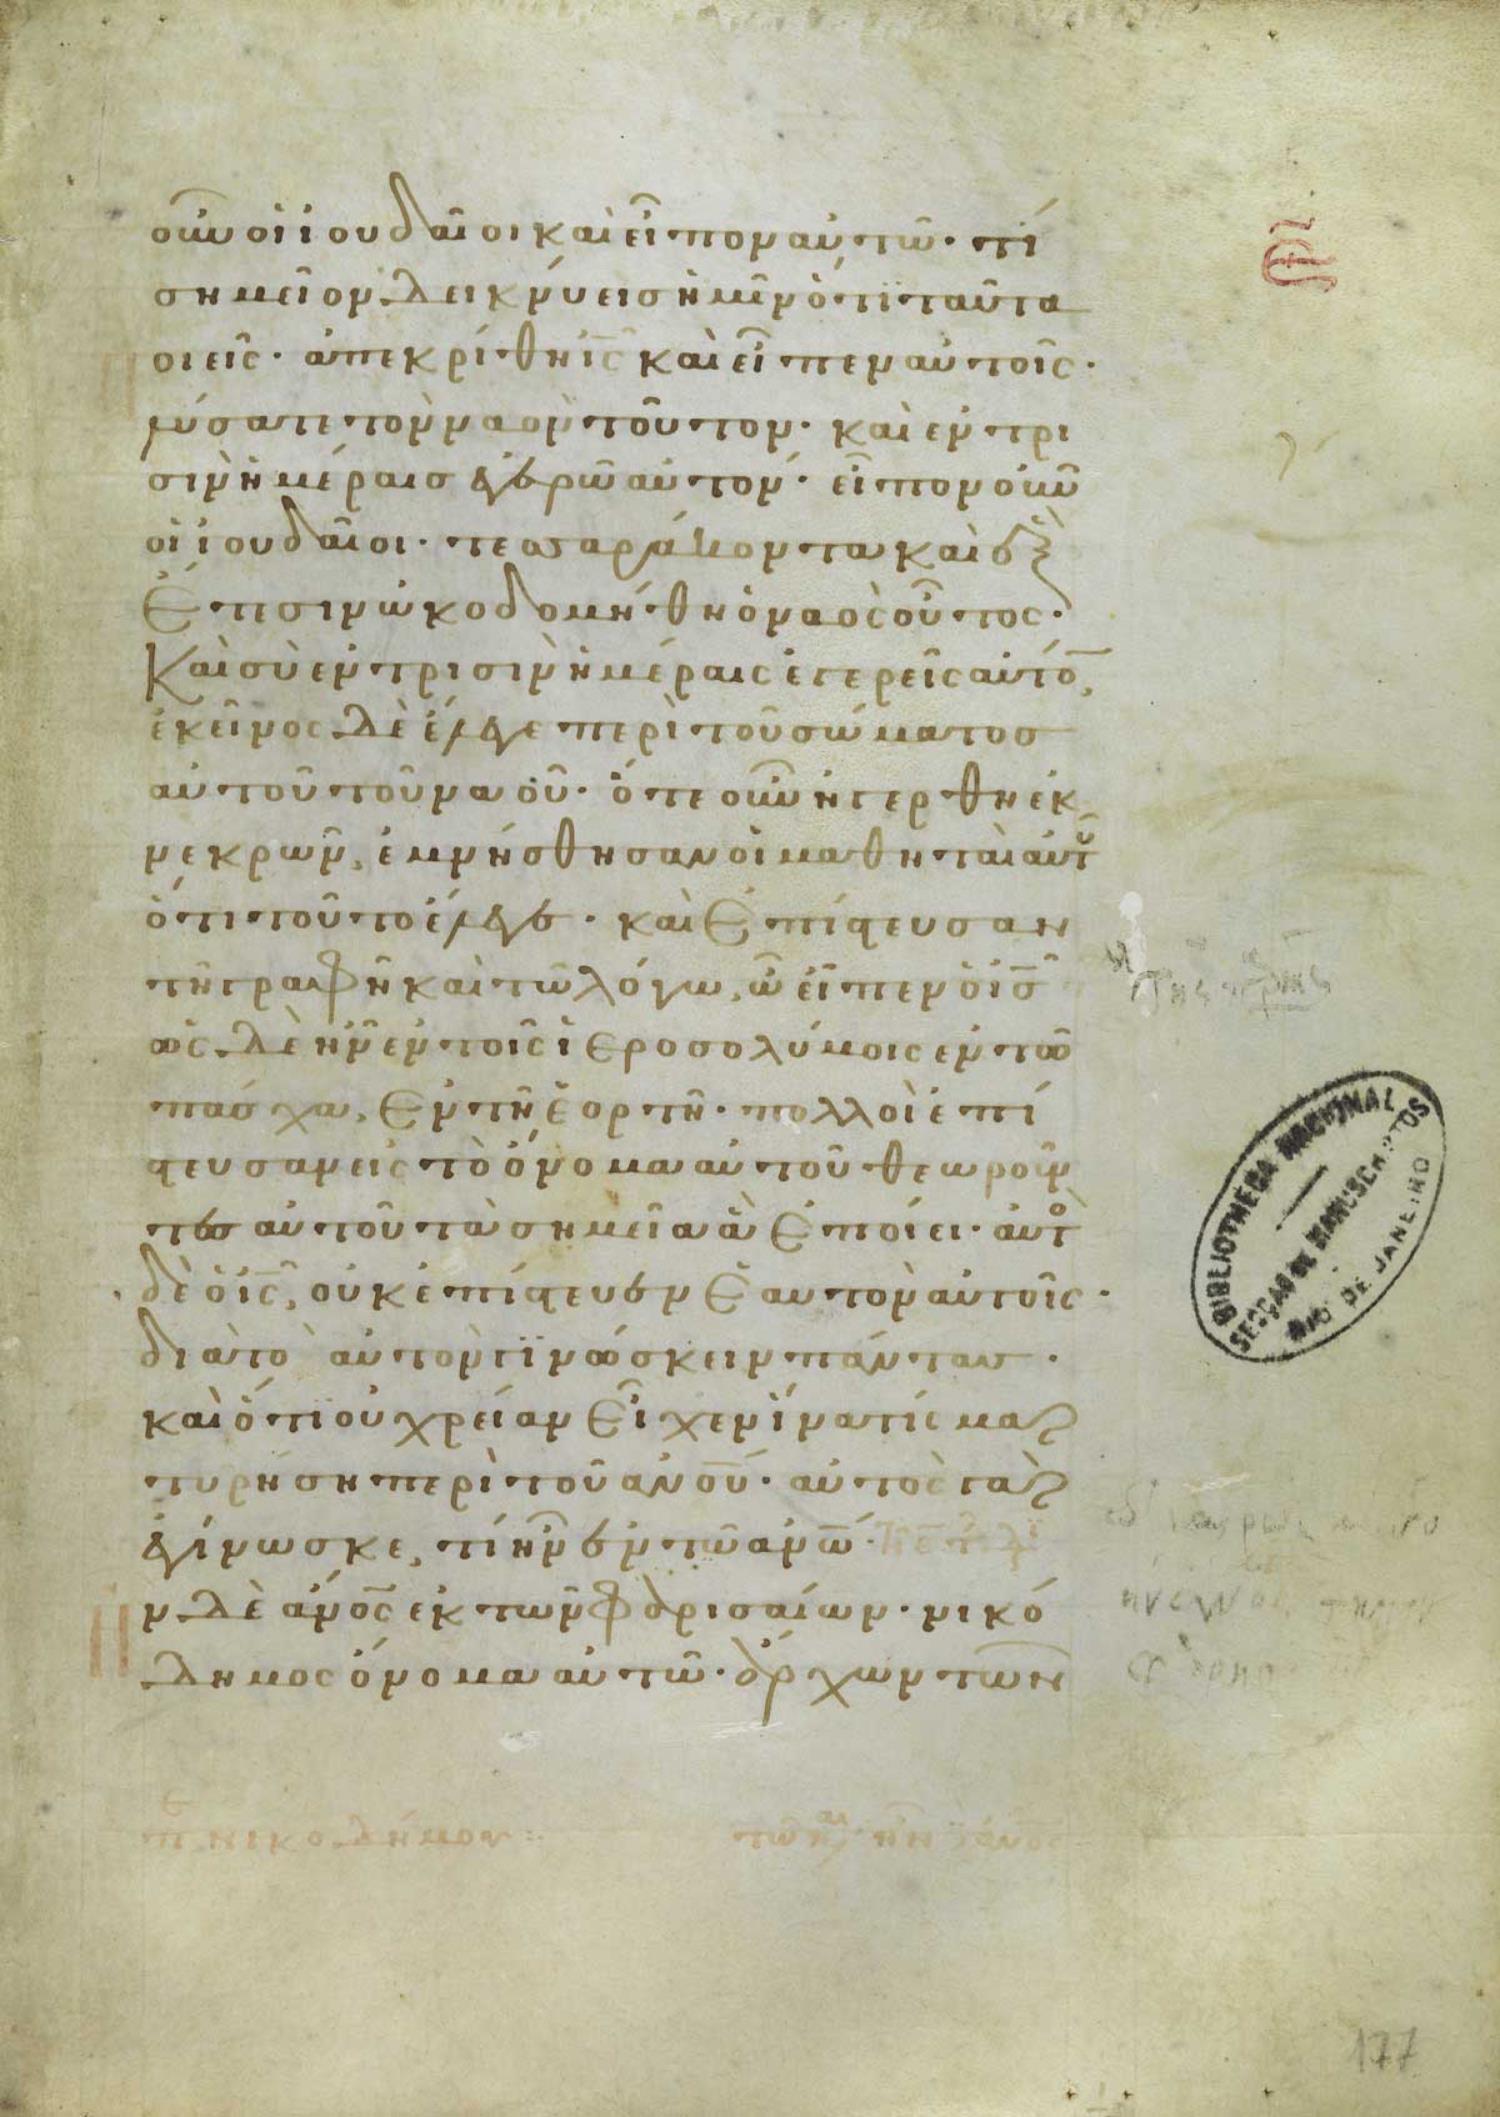 οὖν οἱ ἰουδαῖοι καὶ εἶπον αὐτῶ· τί
σημεῖον δεικνύεις ἡμῖν ὅτι ταῦτα
οιεῖς· ἀπεκρίθη ις καὶ εἶπεν αὐτοῖς·
λύσατε τὸν ναὸν τοῦτον· καὶ ἐν τρι
σὶν ἡμέραις ἐγερῶ αὐτόν· εἶπον οὖν
οἱ ἰουδαῖοι· τεσσαράκοντα καὶ ἓξ
ἔτεσιν ὠκοδομήθη ὁ ναὸς οὗτος·
Καὶ σὺ ἐν τρισὶν ἡμέραις ἐγερεῖς αὐτό,
ἐκεῖνος δὲ ἔλεγε περὶ τοῦ σώματος
αὐτοῦ τοῦ ναοῦ· ὅτε οὖν ἠγέρθη ἐκ
νεκρῶν, ἐμνήσθησαν οἱ μαθηταὶ αὐτ
ὅτι τοῦτο ἔλεγε· καὶ ἐπίστευσαν
τῆ γραφῆ καὶ τῶ λόγω, ὧ εἶπεν ὁ ις
ὡς δὲ ἦν ἐν τοῖς ἱεροσολύμοις ἐν τῶ
πάσχα, ἐν τῆ ἑορτῆ· πολλοὶ ἐπί
στευσαν εἰς τὸ ὄνομα αὐτοῦ θεωροῦν
τες αὐτοῦ τὰ σημεῖα ἃ ἐποίει· αὐτ
δὲ ὁ ις, οὐκ ἐπίστευσεν ἑαυτὸν αὐτοῖς·
διὰ τὸ αὐτὸν γινώσκειν πάντας·
καὶ ὅτι οὐ χρείαν εἶχεν ἵνα τίς μαρ
τυρήση περὶ τοῦ ανου· αὐτὸς γὰρ
ἐγίνωσκε, τί ἦν ἐν τῶ ανω·
ν δὲ ανος ἐκ τῶν φαρισαίων· νικό
δημος ὄνομα αὐτῶ· ἄρχων τῶν
νικοδήμου
BIBLIOTHECA NACIONAL
SECÇÃO DE MANUSCRIPTOS
RIO DE JANEIRO
177